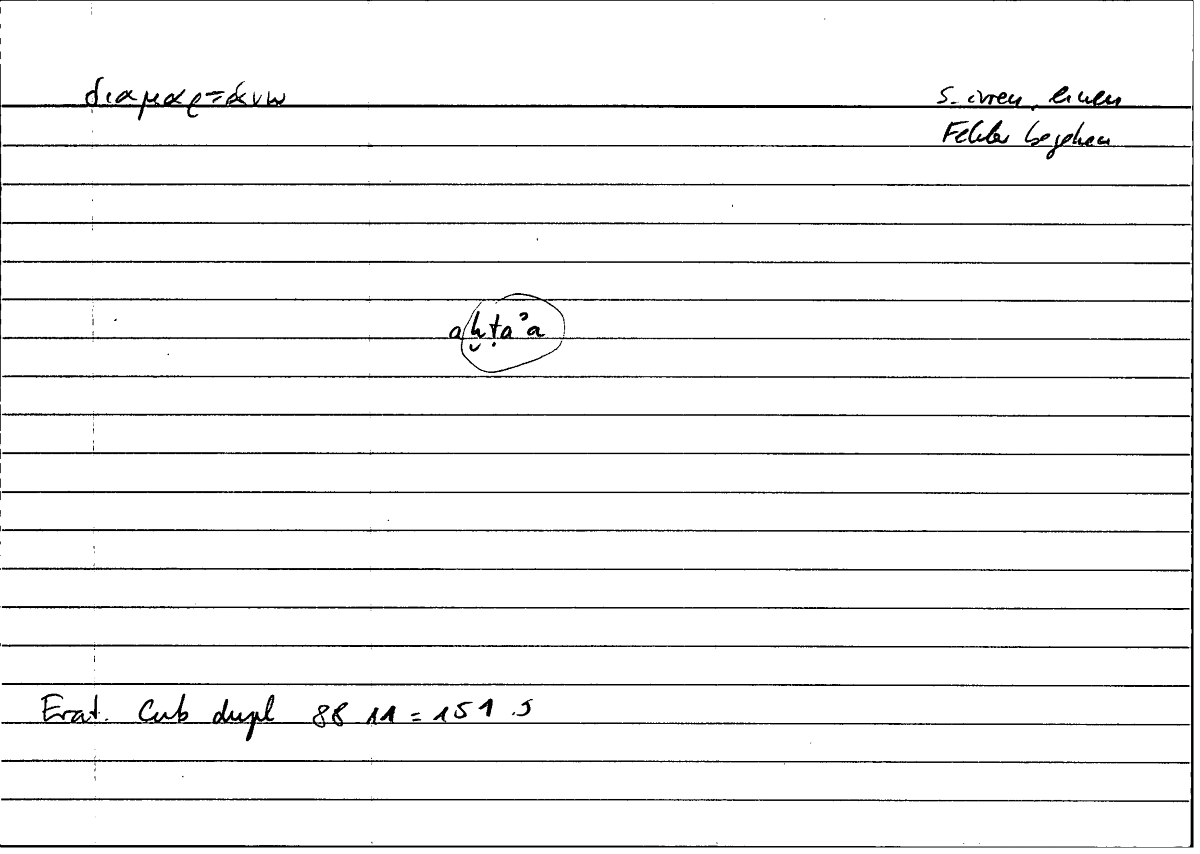 διαμαρτάνω
s. irren, einen
Fehler begehen
aḫṭaʾa
Erat. Cub dupl 88 11 = 151.5